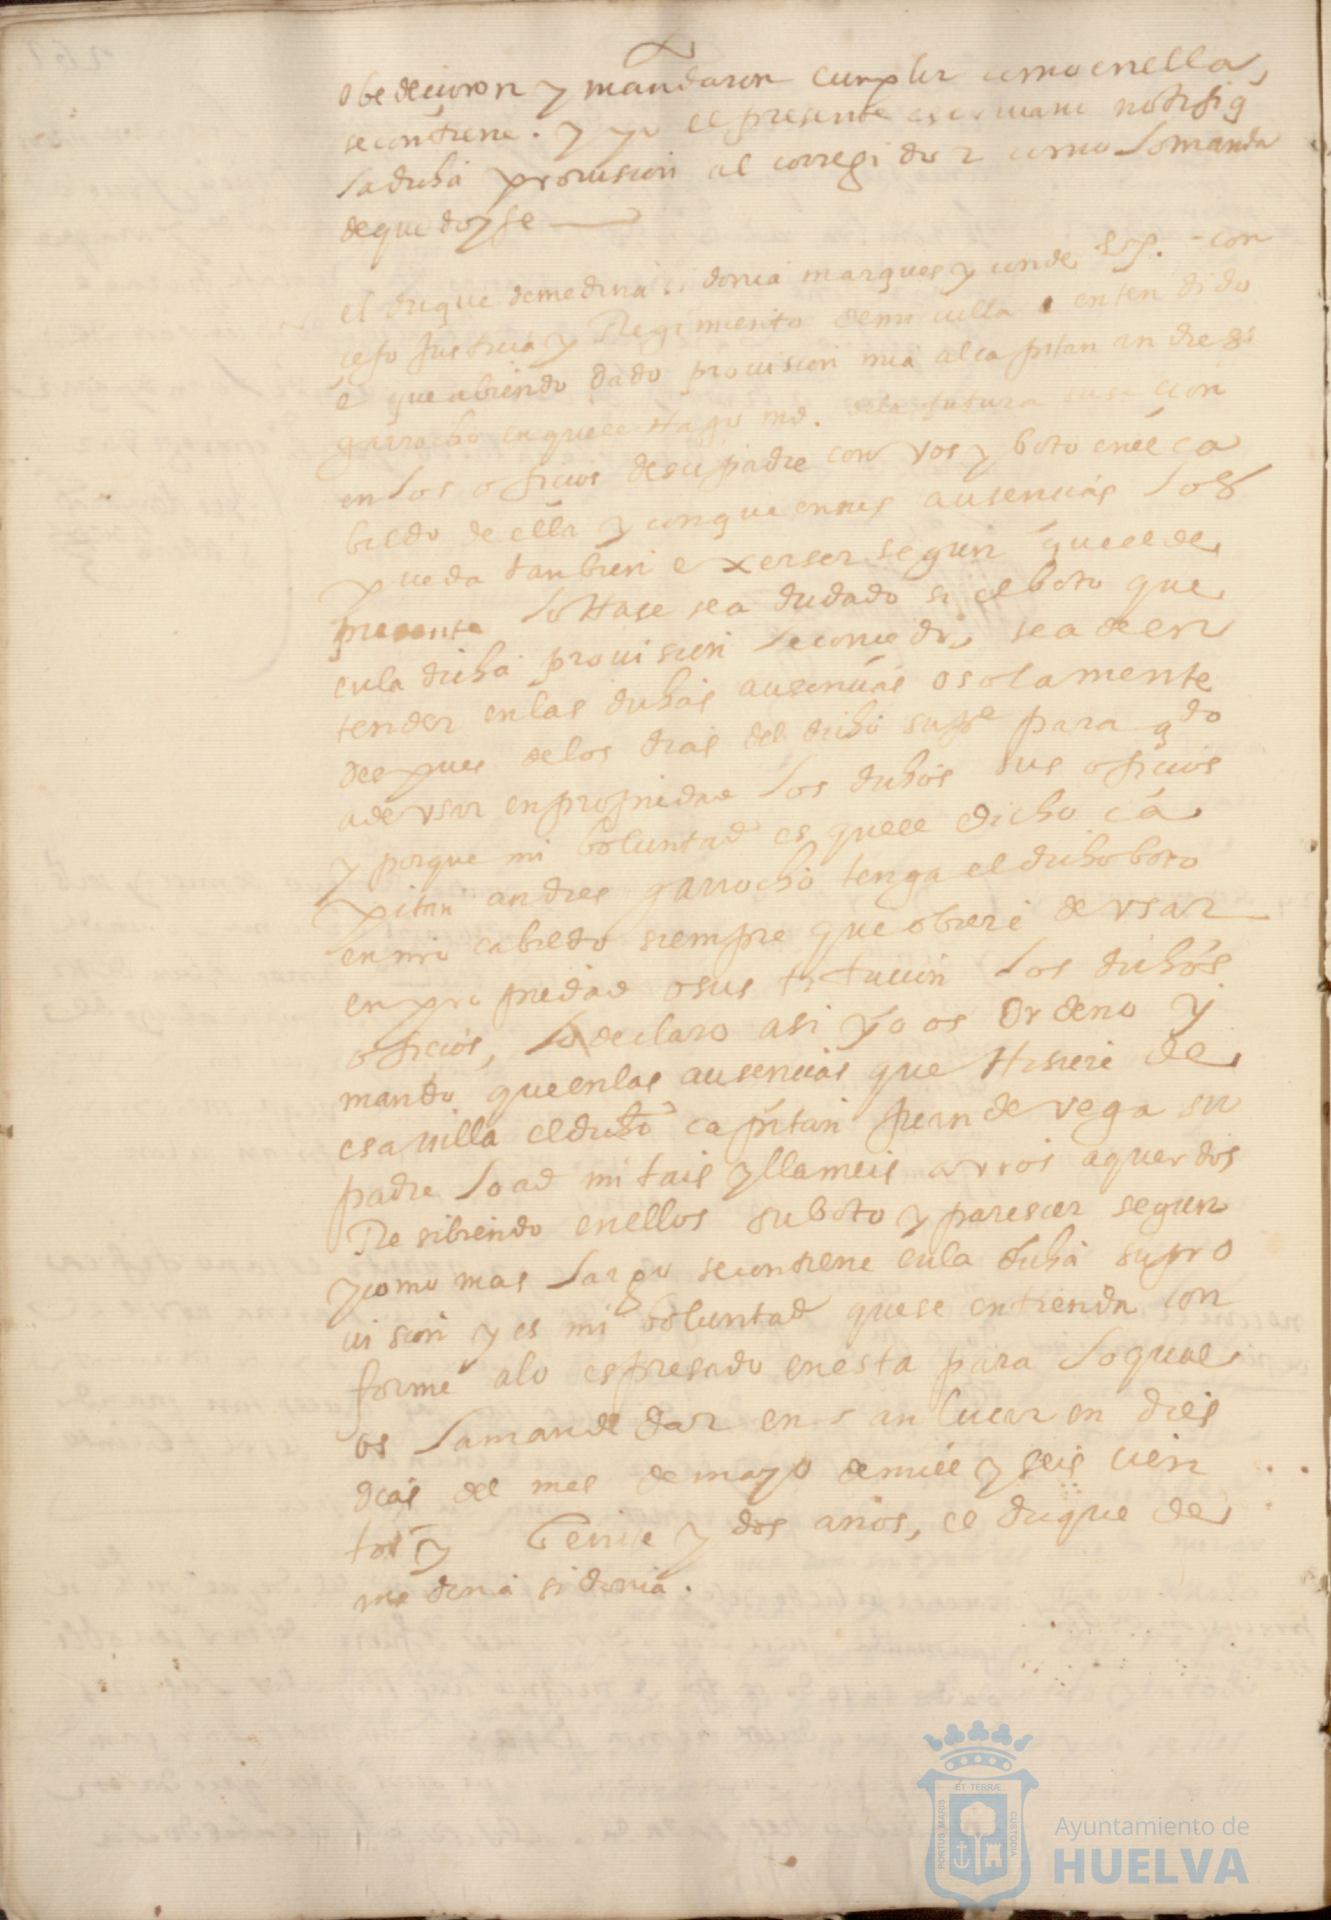 obedecieron y mandaron cumplir como en ella
se contiene. y yo el presente escrivano notifiq
la dicha provision al corregidor como lo manda
de que doy fe
el duque de medina sidonia marques y conde &c. - con
cejo Justicia y Regimiento de mi villa entendido
e que abiendo dado provision mia al capitan andres
garrocho en que le Hago md. de la futura sucecion
en los oficios de su padre con vos y boto en el ca
bildo de ella y con que en sus ausencias los
pueda tanbien exerser segun que el de
presente lo Hase se a dudado si el boto que
en la dicha provision le concedi, se a de en
tender en las dichas ausencias o solamente
despues de los dias del dicho su pe para qdo
a de vsar en propiedad los dichos sus oficios
y porque mi boluntad es que el dicho ca
pitan andres garrocho tenga el dicho boto
en mi cabildo siempre que obiere de vsar
en propiedad o sustitucion los dichos
oficios, lo declaro asi y os Ordeno y
mando que en las ausencias que Hisiere de
esa villa el dicho capitan Juan de vega su
padre lo admitais y llameis a vros aquerdos
Resibiendo en ellos su boto y parescer segun
y como mas largo se contiene en la dicha su pro
vision y es mi boluntad que se entienda con
forme a lo espresado en esta para lo qual
os la mande dar en san lucar en dies
dias del mes de mayo de mill y seis cien
tos y veinte y dos años, el duque de
medina sidonia.
ET TERRÆ
PORTUS MARIS
CUSTODIA
Ayuntamiento de
HUELVA